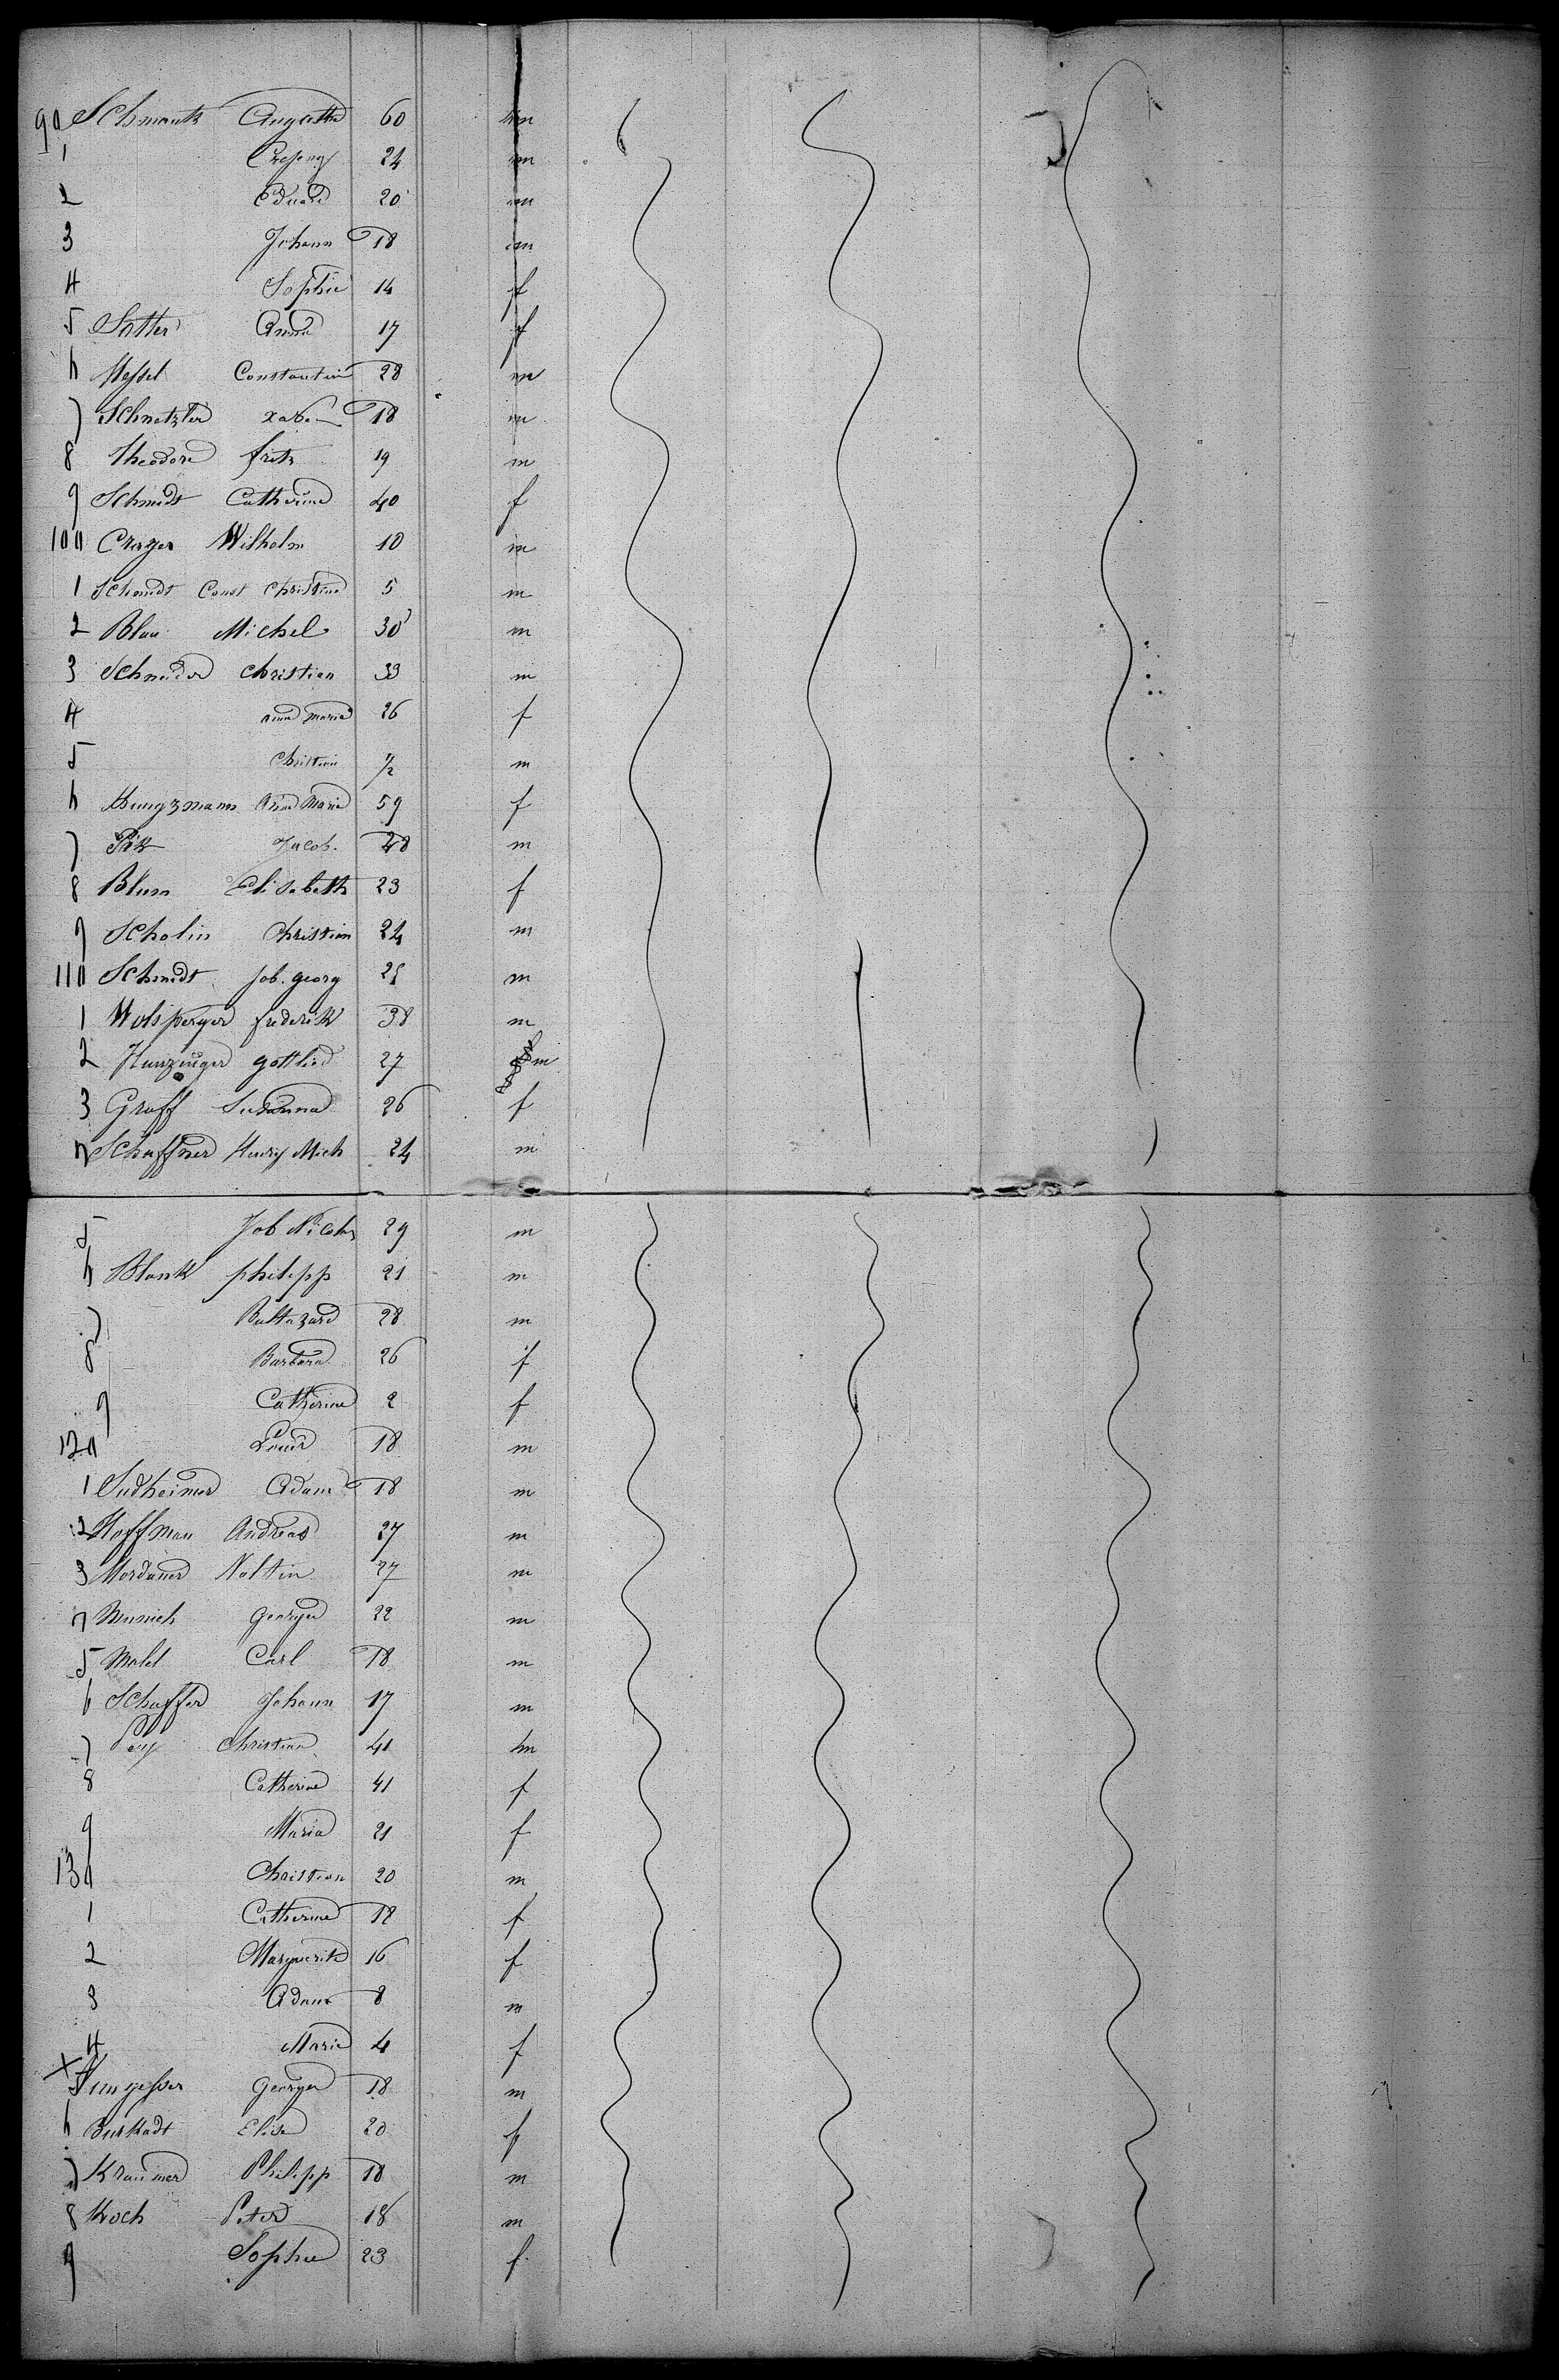 90 Schmautz Augatha 60 m
1 24 m
2 Eduard 20 m
3 Johann 18 m
4 Sophie 14 f
5 Sutter Anna 17 f
6 Hessel Constantin 28 m
7 Schnetzler Xav. 18 m
8 Theodore fritz 19 m
9 Schmidt Catherine 40 f
100 Creyer Wilhelm 10 m
1 Schmidt Const Christine 5 m
2 Blau Michel 30 m
3 Schneider Christian 33 m
4 anna maria 26 f
5 Christian 1/2 m
6 Kungzmann Anna Maria 59 f
7 Jacob. 28 m
8 Blum Elisabeth 23 f
9 Scholin Christian 24 m
110 Schmidt Joh. georg 25 m
1 Wolsperger frederik 38 m
2 Kunzinger gottlieb 27 m
3 Graff Susanna 26 f
4 Schaffner Henrij Mich 24 m
5 Joh Nicols 29 m
6 Blank philipp 21 m
7 Baltazard 28 m
8 Barbara 26 f
9 Catherine 2 f
120 Louis 18 m
1 Sudheimer Adam 18 m
2 Hoffman Andreas 27 m
3 Mordauer Noltin 27 m
4 Munich George 22 m
5 Mahl Carl 18 m
6 Schaffer Johann 17 m
7 Christian 41 m
8 Catherine 41 f
9 Maria 21 f
130 Christian 20 m
1 Catherine 18 f
2 Marguerite 16 f
3 Adam 8 m
4 Marie 4 f
x 5 Hungesser George 18 m
6 Burkhadt Elisa 20 f
7 Kraumer Philipp 18 m
8 Koch Peter 18 m
9 Sophie 23 f